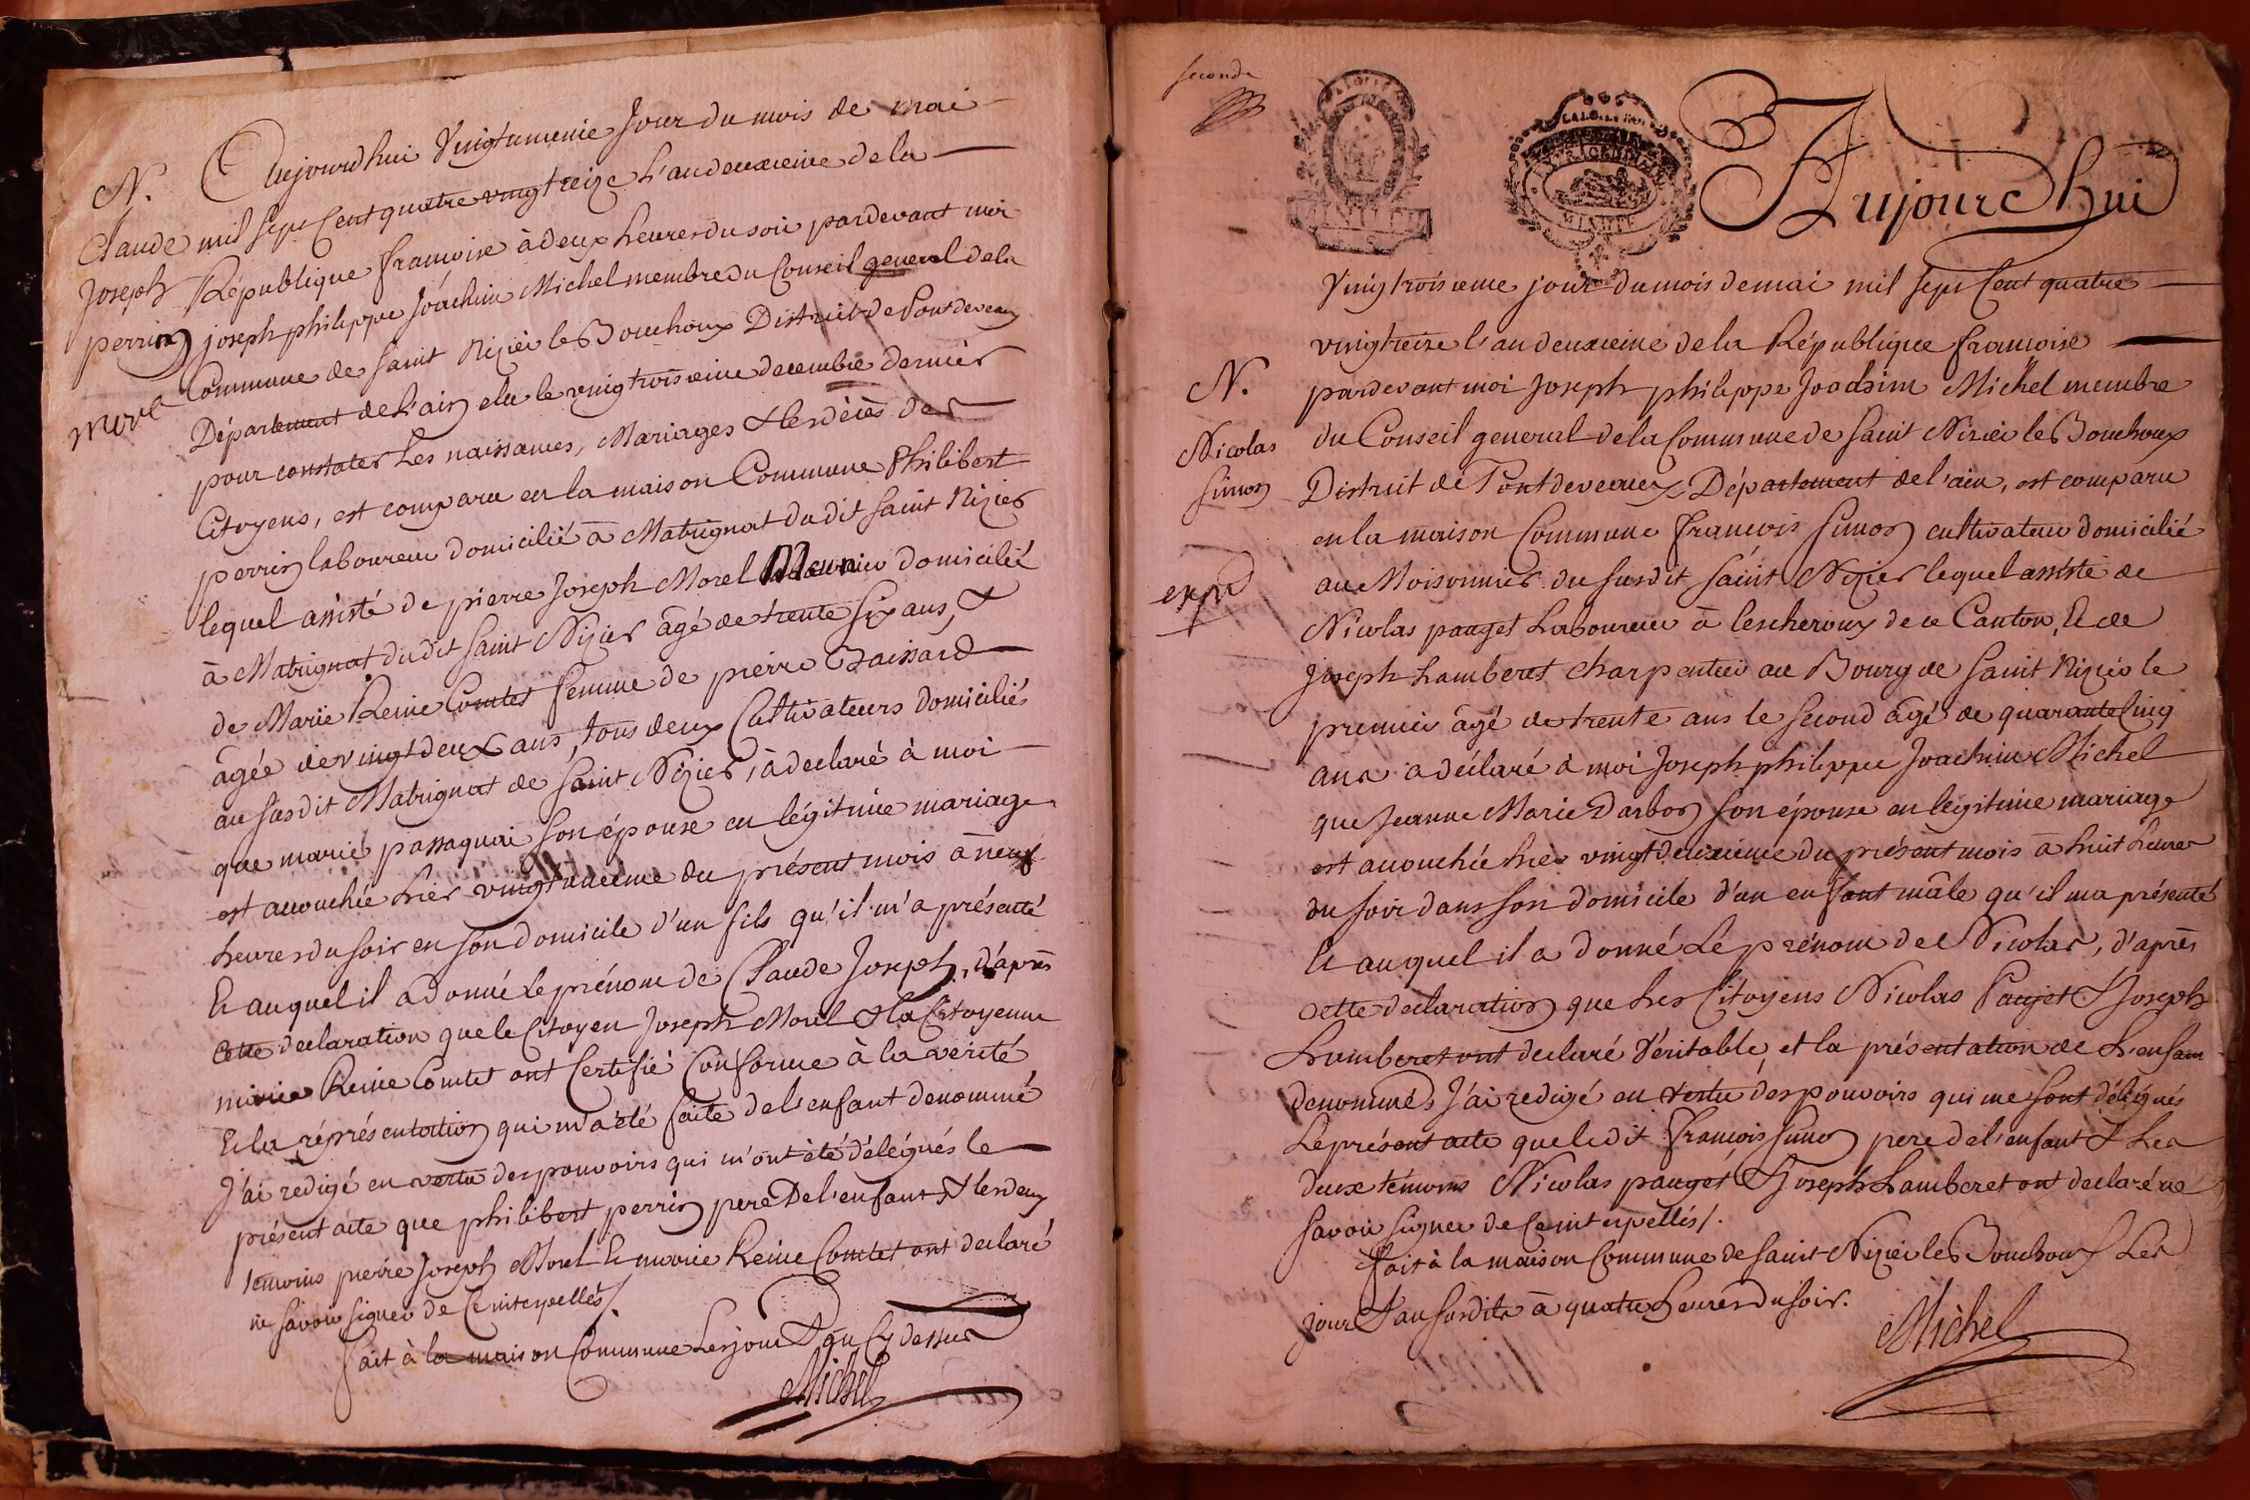 N.
Claude
Joseph
perrin
mort
Aujourd'hui vingtunieme Jour du mois de mai
mil sept Cent quatre vingt treize L'an deuxieme de la
République françoise à deux heures du soir pardevant moi
joseph philippe Joachim Michel membre du Conseil general de la
Commune de saint Nizier le Bouchoux District de Pontdevaux
Département de L'ain elu le vingtroisieme decembre dernier
pour constater Les naissances, Mariages & les décès des
Citoyens, est comparu en la maison Commune Philibert
perrin laboureur domicilié à Matrignat dudit saint Nizier
lequel assisté de pierre Joseph Morel Meunier domicilié
à Matrignat dudit saint Nizier âgé de trente six ans, &
de Marie Reine Comtet femme de pierre
âgée de vingtdeux ans, tous deux Cultivateurs domiciliés
au susdit Matrignat de saint Nizier, à declaré à moi
que marie passaquai son épouse en légitime mariage
est accouchée hier du présent mois à neuf
heures du soir en son domicile d'un fils qu'il m'a présenté
Et auquel il a donné Le prénom de Claude Joseph, d'après
cette declaration que le Citoyen Joseph Morel & la Citoyenne
marie Reine Comtet ont Certifié Conforme à la verité
Et la réprésentation qui m'a été faite de l'enfant denommé
J'ai redigé en vertu des pouvoirs qui m'ont été délégués le
présent acte que philibert perrin pere De l'enfant & les deux
témoins pierre Joseph Morel Et marie Reine Comtet ont declaré
ne savoir signer de Ce interpellés/.
fait à la maison Commune Les jour & an Cy dessus
Michel
seconde
Aujourd'hui
N.
Nicolas
Simon
exp.d
Vingtroisieme jour du mois de mai mil sept Cent quatre
vingtreize l'an deuxieme de la République françoise
pardevant moi Joseph philippe Joachim Michel membre
du Conseil general de la Commune de saint Nizier le Bouchoux
District de Pontdevaux Département de l'ain, est comparu
en la maison Commune françois Simon cultivateur domicilié
au Moisonnier du susdit saint Nizier lequel assisté de
Nicolas pauget Laboureur à lescheroux de ce Canton, Et de
Joseph Lamberet charpentier au Bourg de saint Nizier le
premier âgé de trente ans le second âgé de quarante Cinq
ans a déclaré à moi Joseph philippe Joachim Michel
que Jeanne Marie Darbon son épouse en légitime mariage
est accouchée hier vingt deuxieme du présent mois à huit heures
du soir dans son domicile d'un enfant mâle qu'il ma présenté
Et auquel il a donné Le prénom de Nicolas, d'après
cette declaration que Les Citoyens Nicolas Pauget & Joseph
Lamberet ont declaré Véritable, et la présentation de L'enfant
denommé, J'ai redigé en vertu des pouvoirs qui me sont délégués
Le présent acte que ledit françois Simon pere de l'enfant & Les
deux témoins Nicolas pauget & Joseph Lamberet ont declaré ne
savoir signer de Ce interpellés/.
fait à la maison Commune de saint Nizier le Bouchoux Les
jour & an susdits à quatre heures du soir.
Michel